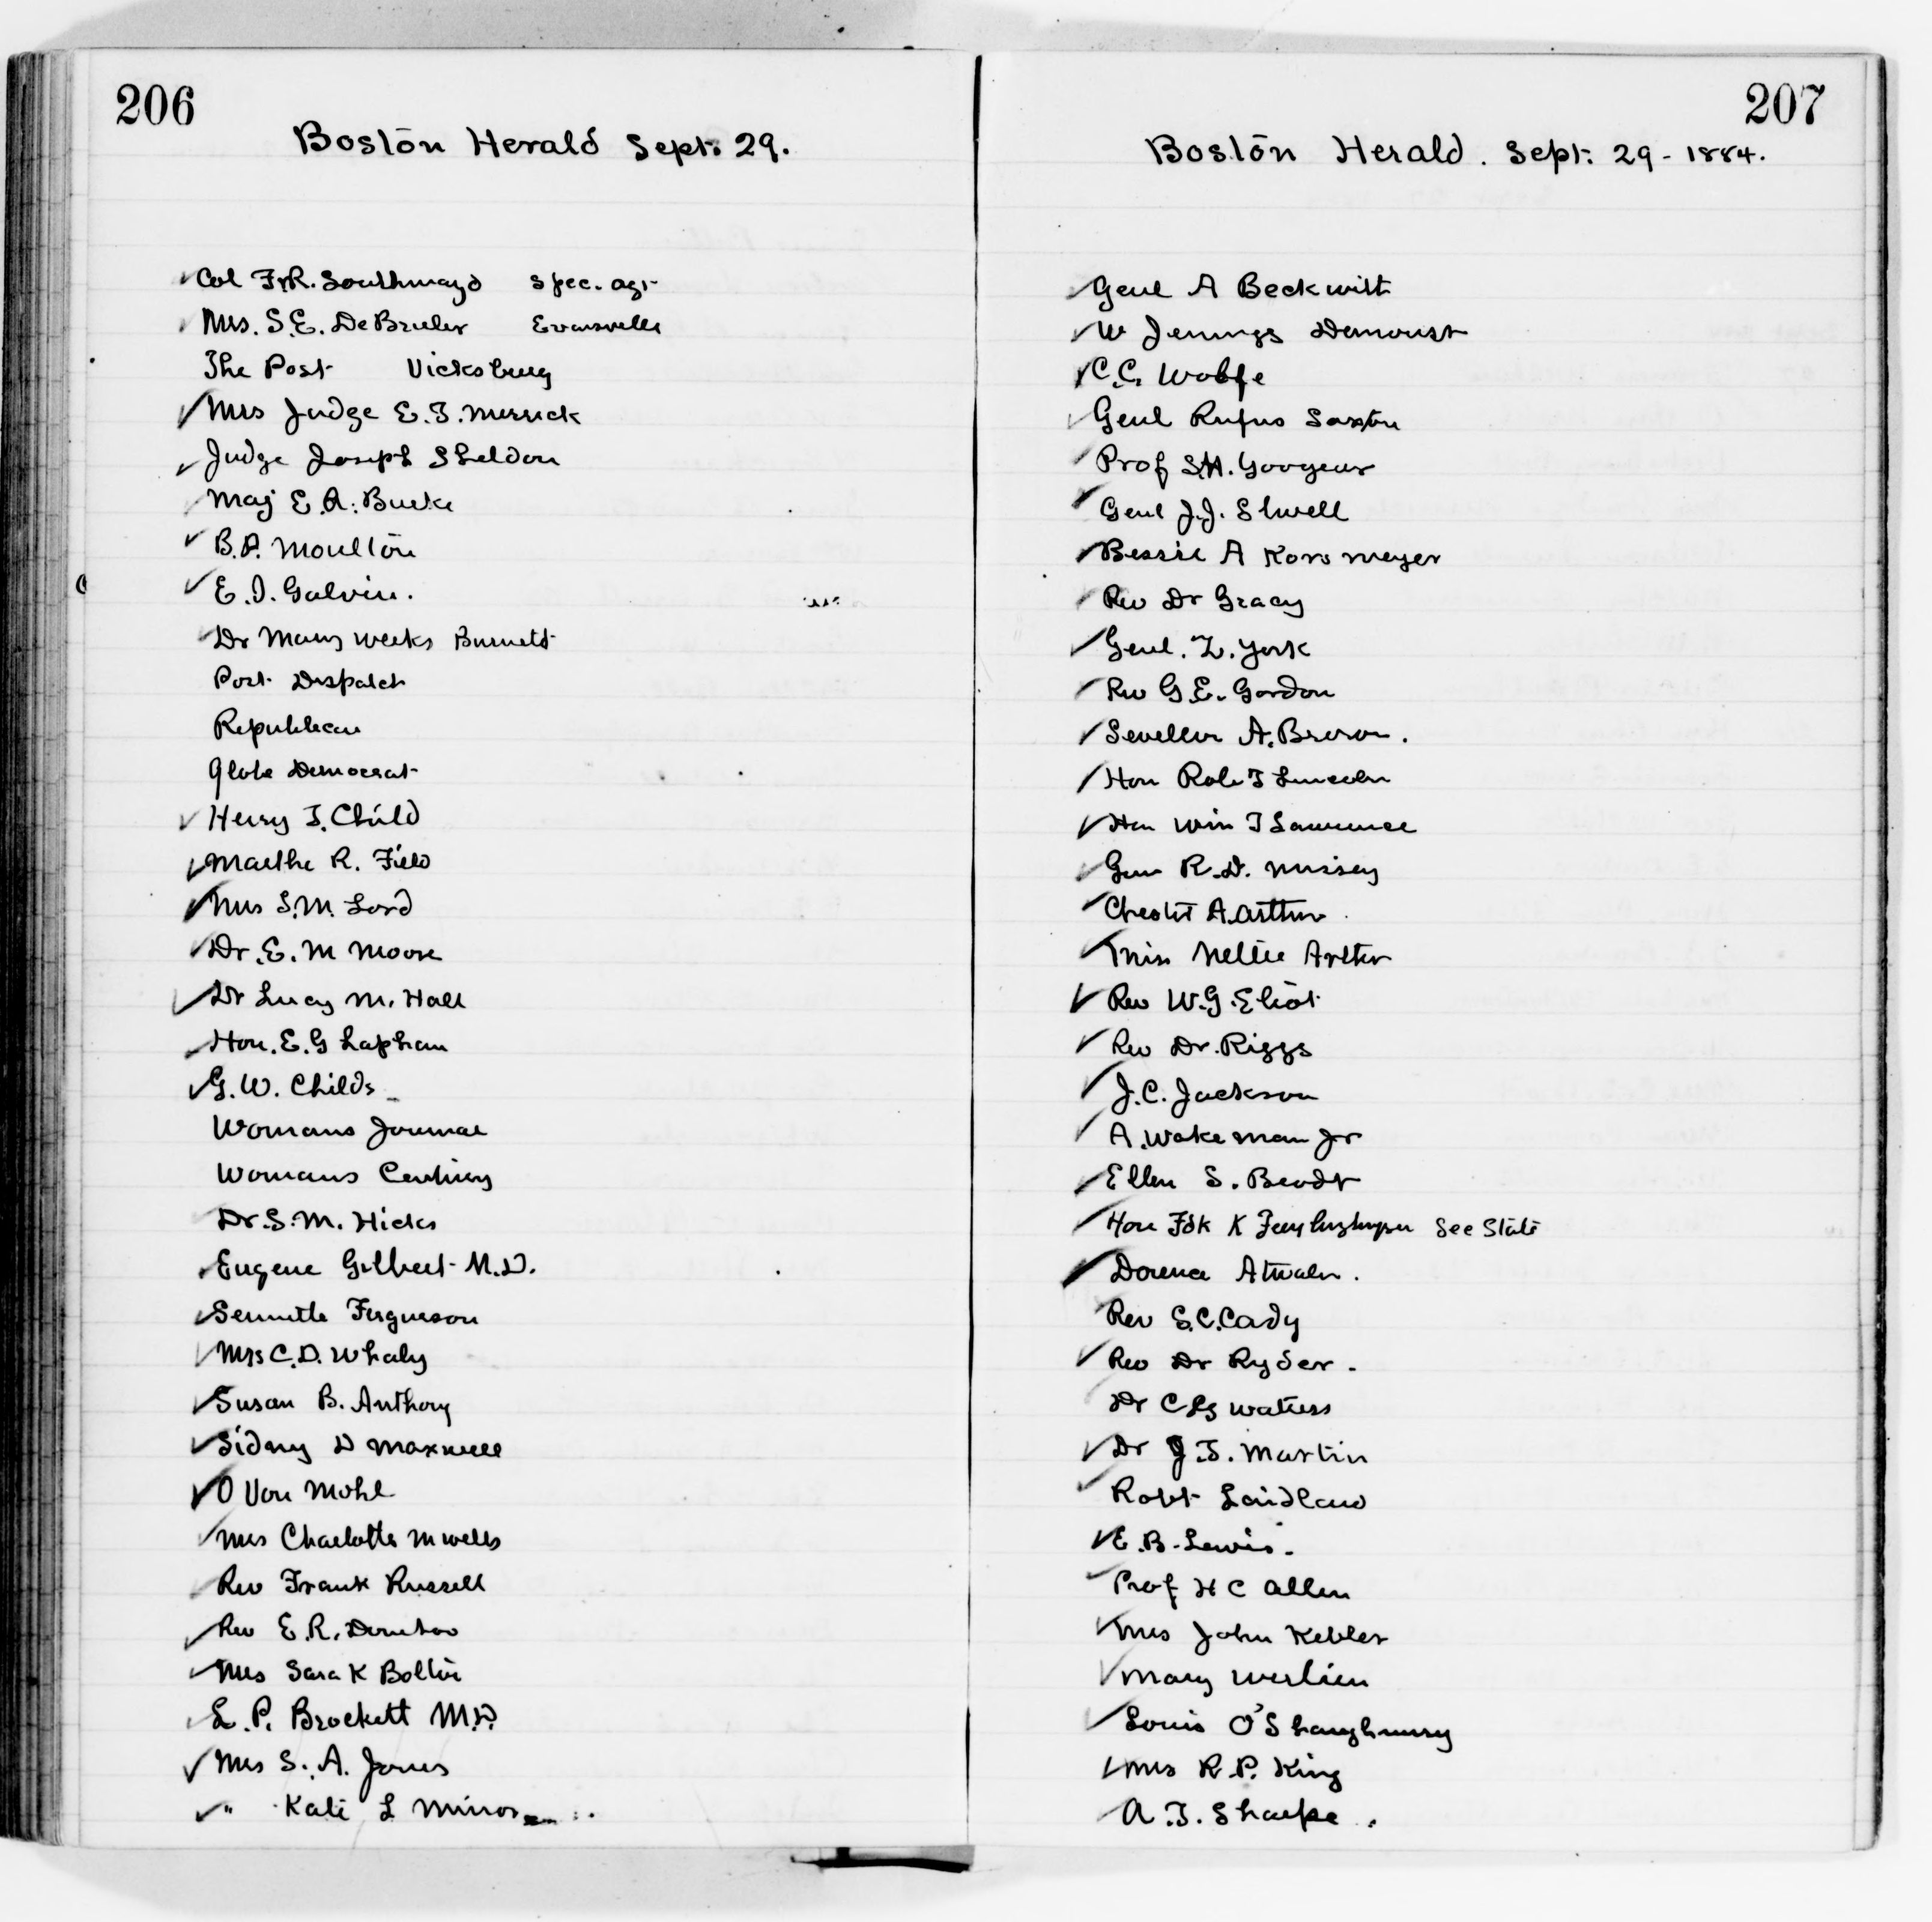 206
Boston Herald Sept. 29.
Col F.R. Southmayd spec. agt
Mrs. S.E. DeBruler Evansville
The Post Vicksburg
Mrs Judge E.T. Merrick
Judge Joseph Sheldon
Maj E.A. Burke
B.P. Moulton
E.I. Galvin.
Dr Mary Weeks Burnett
Post Dispatch
Republican
Globe Democrat
Henry T. Child
Martha R. Field
Mrs S.M. Lord
Dr. E. M Moore
Dr Lucy M. Hall
Hon. E.G Lapham
G.W. Childs
Womans Journal
Womans Century
Dr. S.M. Hicks
Eugene Gilbert M.D.
Sennette Ferguson
Mrs C.D. Whaly
Susan B. Anthony
Sidney D Maxwell
O Von Mohl
Mrs Charlotte M Wells
Rev Frank Russell
Rev E.R. Donehoo
Mrs Sara K Bolton
L.P. Brockett M.D.
Mrs S.A. Jones
" Kate L Minor
207
Boston Herald. Sept. 29 - 1884.
Genl A Beckwith
W Jennings Demorest
C.C. Wolfe
Genl Rufus Saxton
Prof
Genl J.J. Elwell
Bessie A Korsmeyer
Rev Dr Gracey
Genl. Z. York
Rev G.E. Gordon
Sevellon A. Brown.
Hon Robt T Lincoln
Hon Wm T Lawrence
Gen R.D. Mussey
Chester A. Arthur
Miss Nellie Arthur
Rev W.G. Eliot
Rev Dr. Riggs
J.C. Jackson
A. Wakeman Jr
Ellen S.
Hon Fdk K Frelinghuysen Sec State
Dorence Atwater.
Rev S.C. Cady
Rev Dr Ryder.
Dr Waters
Dr J.T. Martin
Robt Laidlaw
E.B. Lewis.
Prof H C Allen
Mrs John Kebler
Mary Werlein
Louis O'Shaughnessy
Mrs R.P. King
A.T. Sharpe.